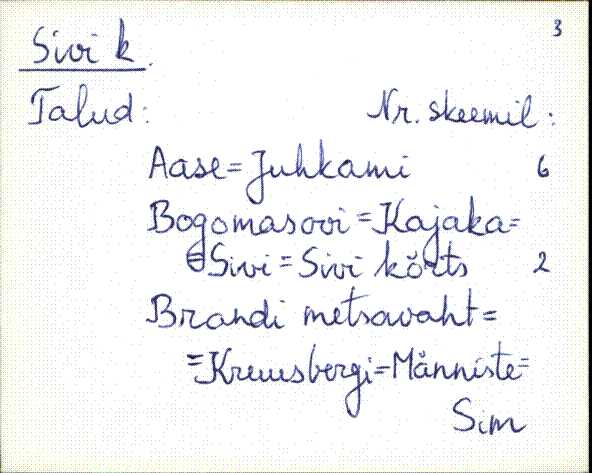 3
Sivi k.
Talud: Nr. skeemil:
Aase=Juhkami 6
Bogomasovi=Kajaka=
=Sivi=Sivi kõrts 2
Brandi metsavaht=
=Kreusbergi=Männiste=
Sim